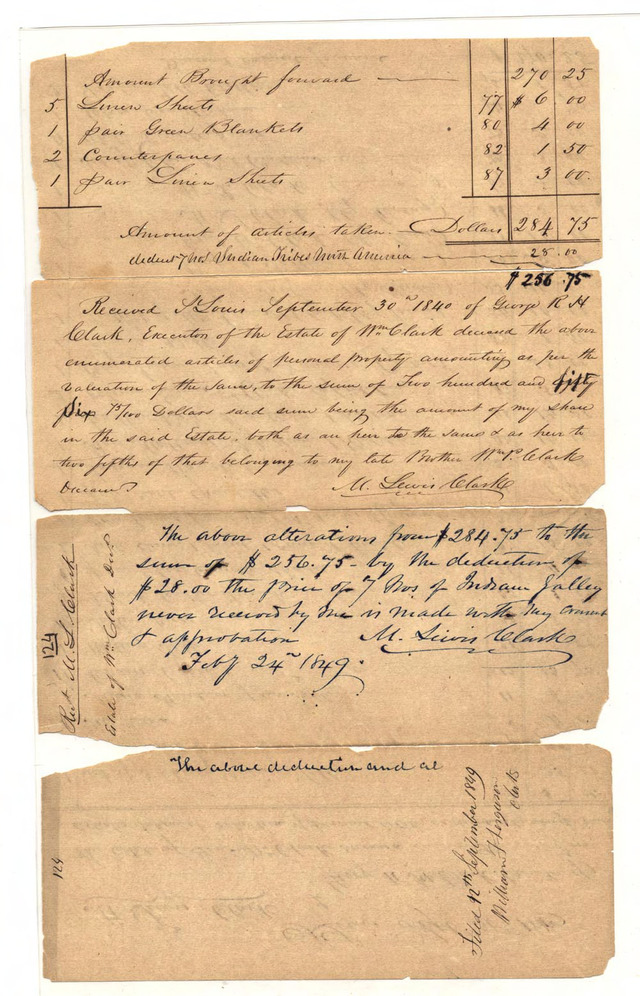 Amount Brought forward — 270 25
5 Linen Sheets 77 $ 6 . 00
1 pair Green Blankets 80 4 00
2 Counterpanes 82 1 50
1 pair Linen Sheets 87 3 00.
Amount of articles taken — Dollars 284 75
deduct 7 Nos. Indian Tribes North America — 28 . 00
$ 256 . 75
Received St Louis September 30th 1840 of George R H
Clark, Executor of the Estate of Wm Clark deceased the above
enumerated articles of personal property amounting as per the
valuation of the same, to the sum of Two hundred and fifty
six 75/100 Dollars said sum being the amount of my share
in the said Estate, both as an heir to the same & as heir to
two fifths of that belonging to my late Brother Wm P. Clark
Deceased
M. Lewis Clark
The above alterations from $284.75 to the
sum of $256.75 - by the deduction of
$28.00 the price of 7 Nos. of Indian Galley
never received by me is made with my consent
& approbation M. Lewis Clark
Feby 24th 1849.
124
Rect M. L. Clark
Estate of Wm Clark Decd
The above deduction and al
124
Filed 12th September 1849
William Ferguson